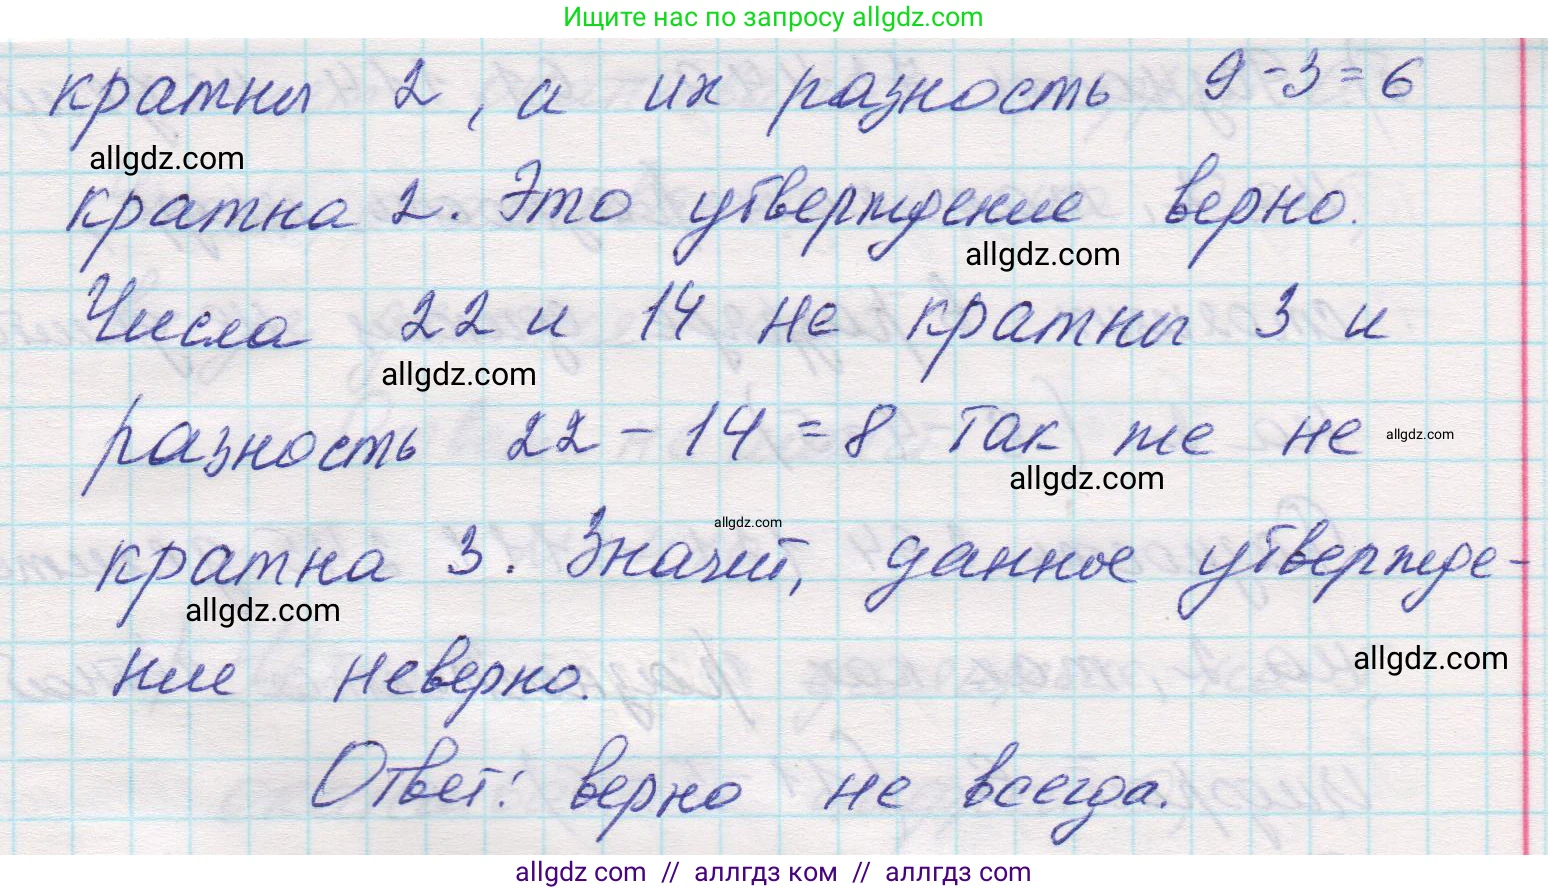 Ищите нас по запросу allgdz.com
кратны 2, а их разность 9-3=6
allgdz.com
кратна 2. Это утверждение верно.
allgdz.com
Числа 22 и 14 не кратны 3 и
allgdz.com
разность 22-14=8 так же не
allgdz.com
allgdz.com
allgdz.com
кратна 3. Значит, данное утвержде-
allgdz.com
ние неверно.
allgdz.com
Ответ: верно не всегда.
allgdz.com // аллгдз ком // аллгдз.com